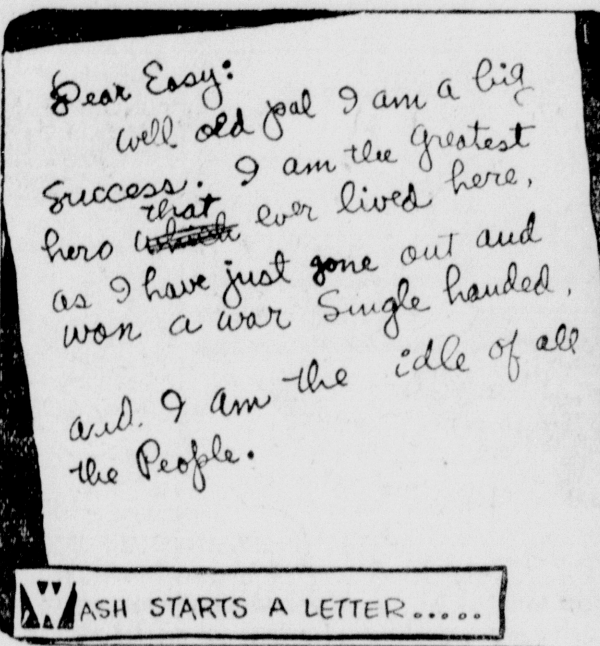 Dear Easy:
well old pal I am a big
Success. I am the greatest
that
hero which ever lived here,
as I have just gone out and
won a war Single handed,
and. I am the idle of all
the People.
WASH STARTS A LETTER.....